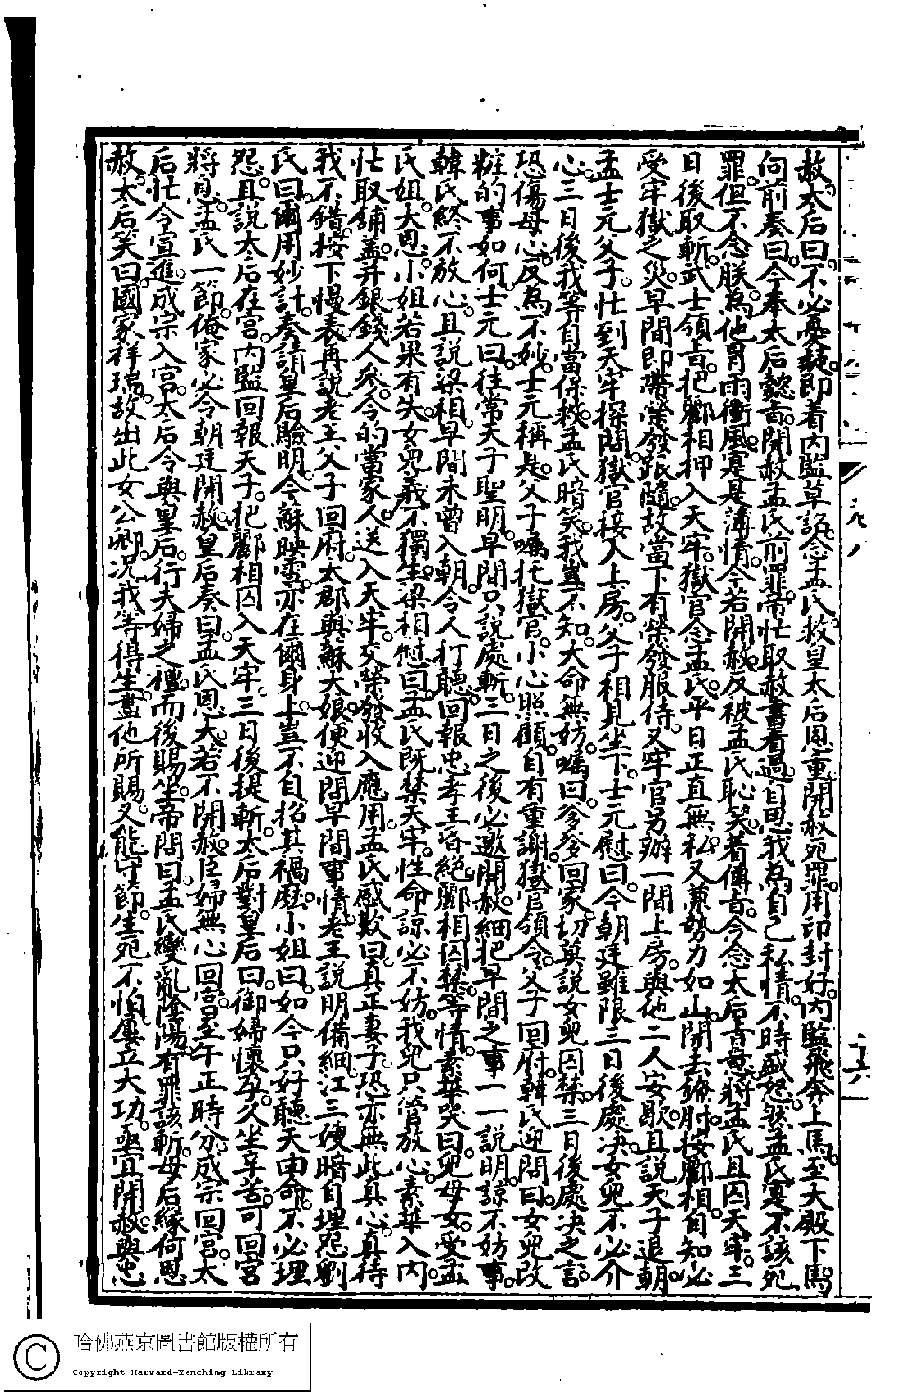 赦太后曰不必憂疑即着內監草詔念孟氏救皇太后恩重開赦死罪用印封好內監飛奔上馬至大殿下馬
向前奏曰今奉太后懿旨開赦孟氏前罪帝忙取赦書看過自思我為自己私情不時盛怒然孟氏實不該死
罪但不念朕為他冒雨衝風實是薄情今若開赦反被孟氏恥笑着傳旨今念太后旨意將孟氏且囚天牢三
日後取斬武士領旨把酈相押入天牢獄官念孟氏平日正直無私又兼勢力如山開去鎖肘按酈相自知必
受牢獄之災早間即帶榮發跟隨故當下有榮發服侍又牢官另辦一間上房與他二人安歇且說天子退朝
孟士元父子忙到天牢探問獄官接入上房父子相見坐下士元慰曰今朝廷雖限三日後處決女兒不必介
心三日後我等自當保救孟氏暗笑我豈不知大命無妨囑曰爹爹回家切莫說女兒囚禁三日後處決之言
恐傷母心反為不妙士元稱是父子囑托獄官小心照顧自有重謝獄官領命父子回府韓氏迎問曰女兒改
粧的事如何士元曰往常天子聖明早間只說處斬三日之後必邀開赦細把早間之事一一說明諒不妨事
韓氏終不放心且說梁相早間未曾入朝令人打聽回報忠孝王昏絕酈相囚禁等情素華哭曰兒母女受孟
氏姐大恩小姐若果有失女兒義不獨生梁相慰曰孟氏既禁天牢性命諒必不妨我兒只管放心素華入內
忙取舖蓋并銀錢人參令的當家人送入天牢交榮發收入應用孟氏感歎曰真正妻子恐亦無此真心真待
我不錯按下慢表再說老王父子回府太郡與蘇大娘便迎問早間事情老王說明備細江三嫂暗自埋怨劉
氏曰爾用妙計奏請皇后驗明今蘇映雪亦在爾身上豈不自招其禍麼小姐曰如今只好聽天由命不必埋
怨且說太后在宮內監回報天子把酈相囚入天牢三日後提斬太后對皇后曰御婦懷孕久坐辛苦可回宮
將息孟氏一節俺家必令朝廷開赦皇后奏曰孟氏恩大若不開赦臣婦無心回宮至午正時分成宗回宮太
后忙令宣進成宗入宮太后令與皇后行夫婦之禮而後賜坐帝問曰孟氏變亂陰陽有罪該斬母后緣何恩
赦太后笑曰國家祥瑞故出此女公卿况我等得生盡他所賜又能守節生死不怕屢立大功亟宜開赦與忠
哈佛燕京圖書館版權所有
Copyright Harvard-Yenching Library